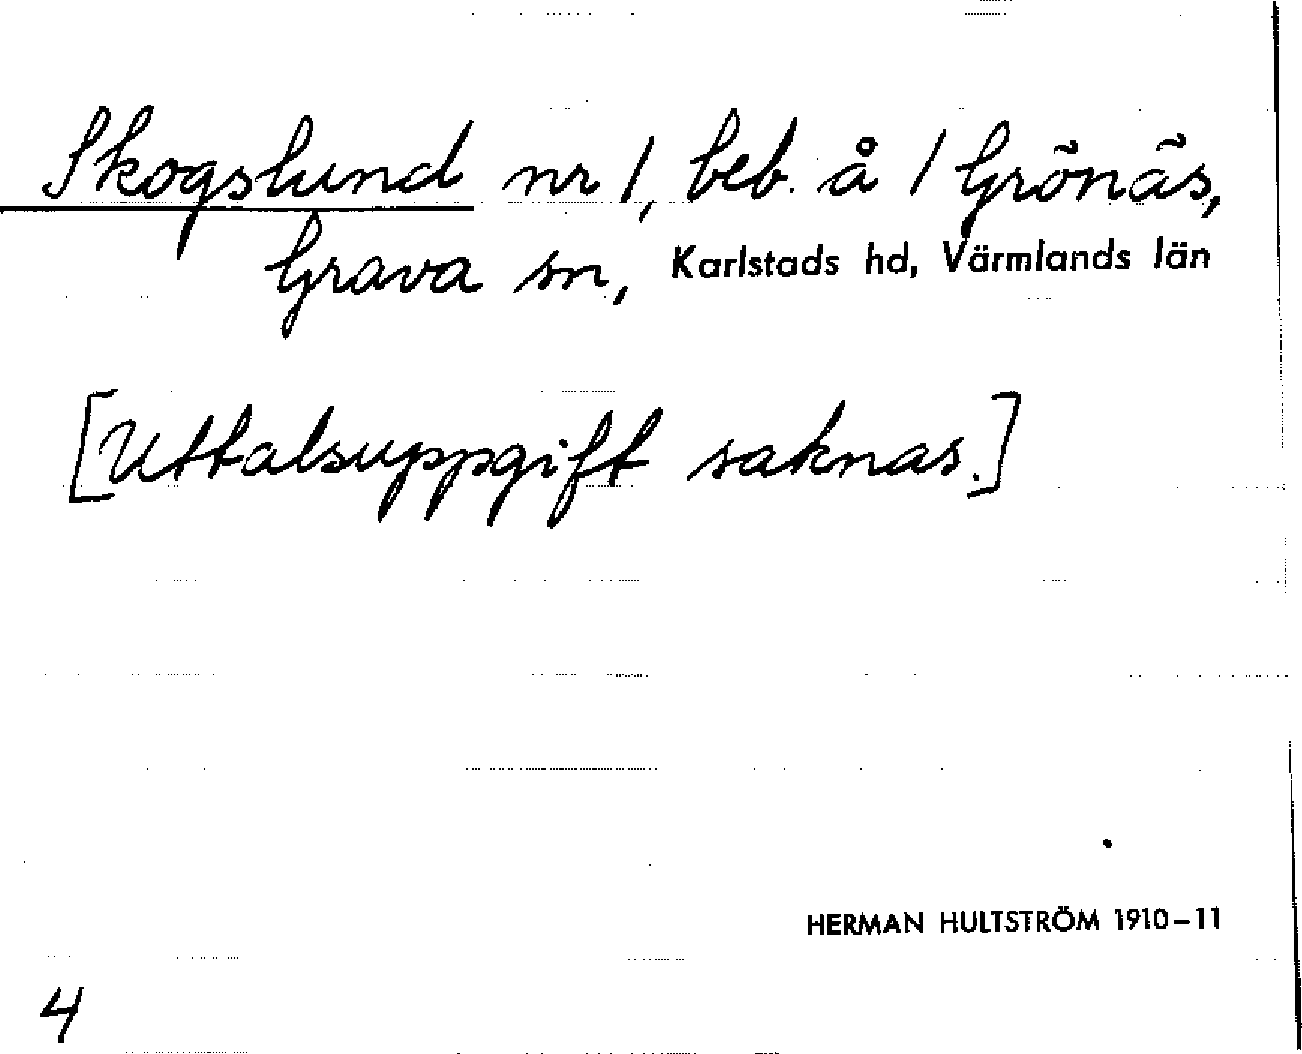 Skogslund nr 1, beb. å 1 Grönäs,
Grava sn, Karlstads hd, Värmlands län
[Uttalsuppgift saknas.]
HERMAN HULTSTRÖM 1910–11
4